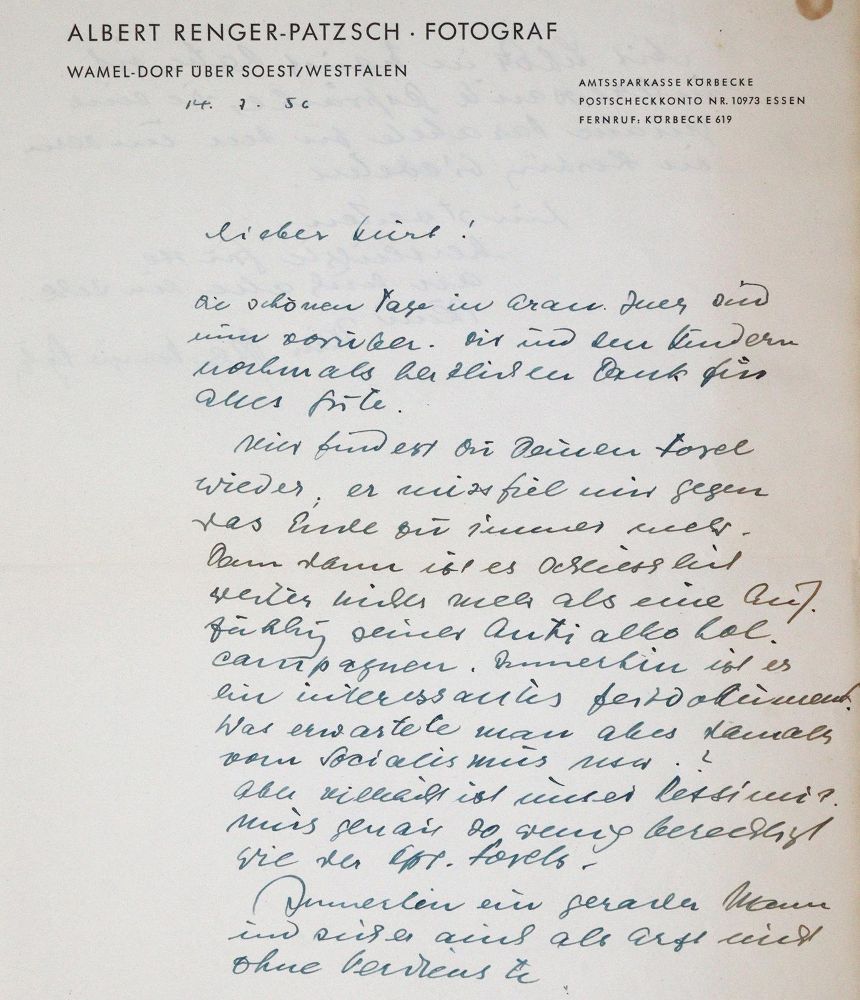 ALBERT RENGER-PATZSCH · FOTOGRAF
WAMEL-DORF ÜBER SOEST/WESTFALEN
AMTSSPARKASSE KÖRBECKE
POSTSCHECKKONTO NR. 10973 ESSEN
FERNRUF: KÖRBECKE 619
14. 7. 56
Lieber Kurt!
die schönen Tage in sind
nun vorüber. Dir und den Kindern
nochmals herzlichen Dank für
alles Gute.
Hier findest Du Deinen Forel
wieder, er missfiel mir gegen
das Ende zu immer mehr.
Denn dann ist es schliesslich
weiter nichts mehr als eine Auf-
zählung seiner Antialkohol-
campagnen. Immerhin ist es
ein interessantes Zeitdokument.
Was erwartete man alles damals
vom Socialismus usw.?
Aber vielleicht ist unser Pessimis-
mus genau so wenig berechtigt
wie der Opt. Forels.
Immerhin ein gerader Mann
und sicher auch als Arzt nicht
ohne Verdienste